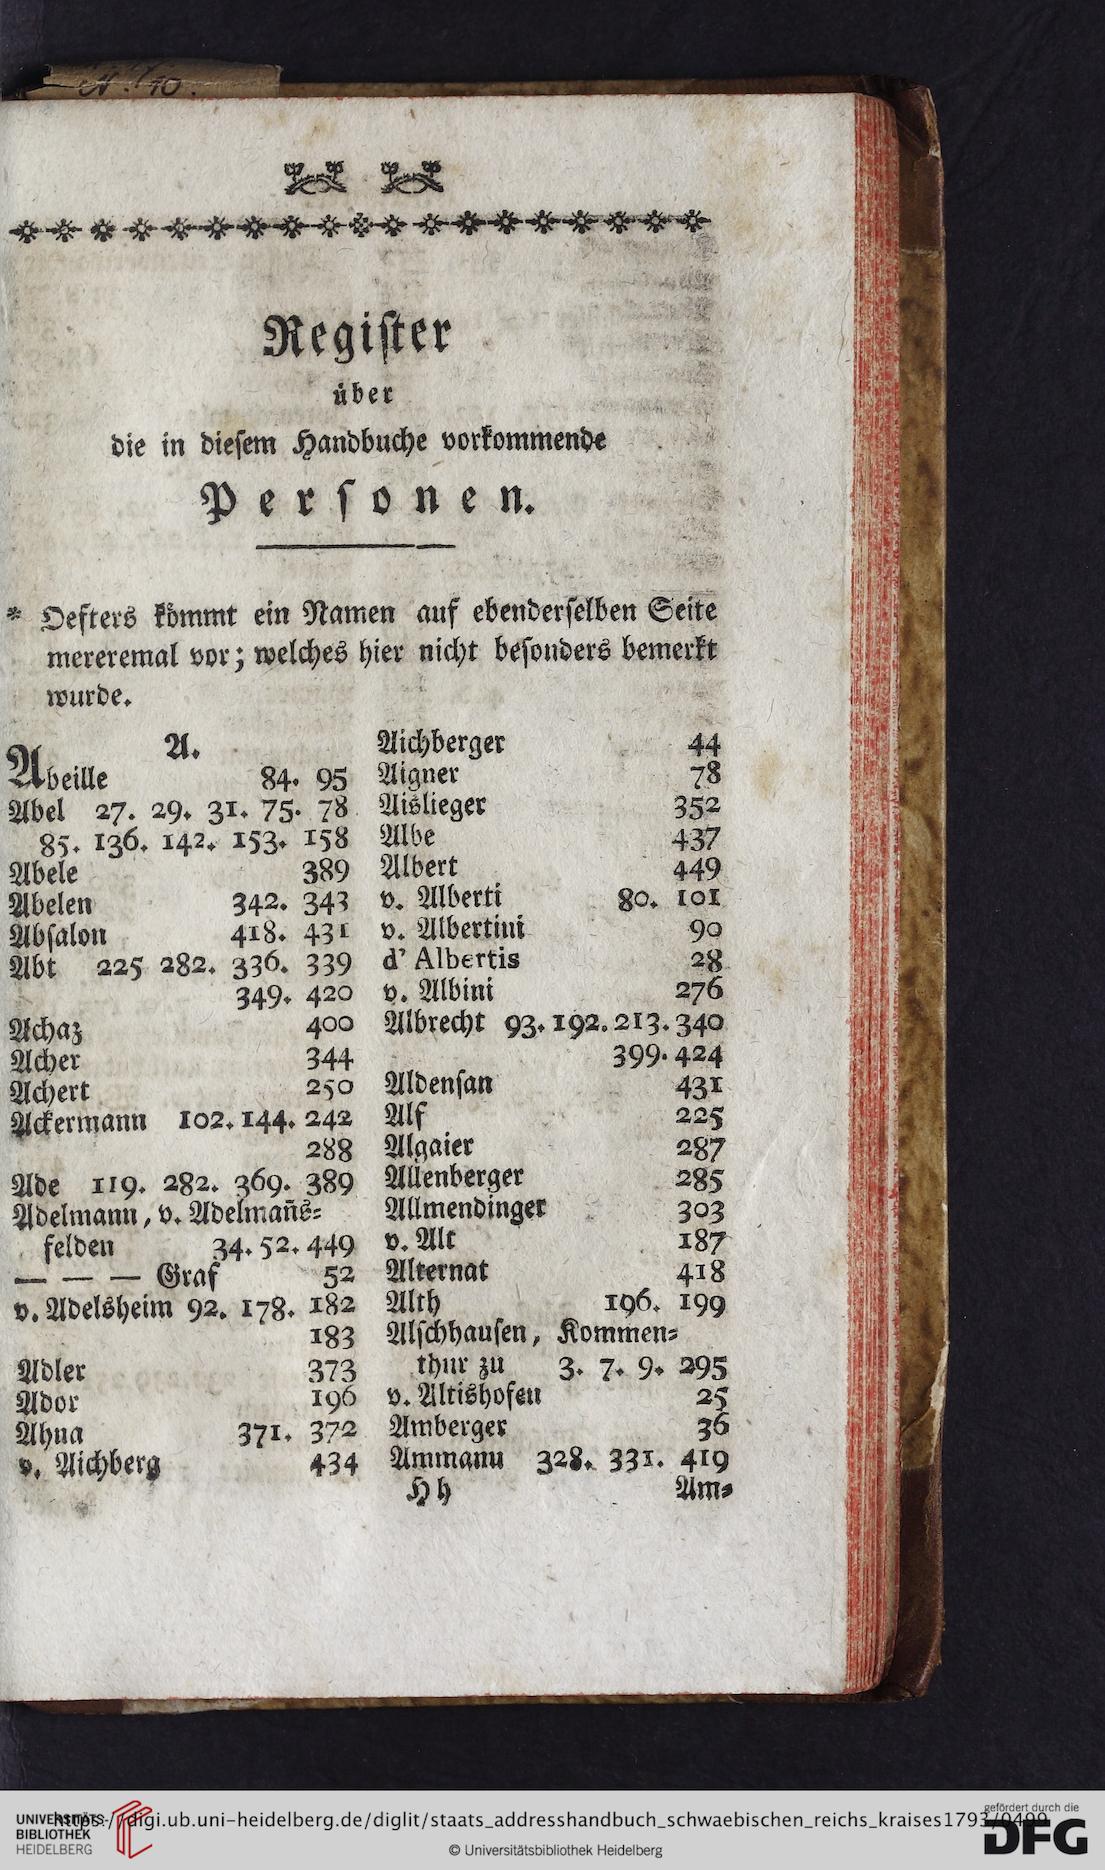 Regiſter
über
die in dieſem Handbuche vorkommende
Perſonen.
* Oefters kömmt ein Namen auf ebenderſelben Seite
mereremal vor; welches hier nicht beſonders bemerkt
wurde.
A.
Abeille 84. 95
Abel 27. 29. 31. 75. 78
85. 136. 142. 153. 158
Abele 389
Abelen 342. 343
Abſalon 418. 431
Abt 225 282. 336. 339
349. 420
Achaz 400
Acher 344
Achert 250
Ackermann 102. 144. 242
288
Ade 119. 282. 369. 389
Adelmann, v. Adelmañs⸗
felden 34. 52. 449
— — — Graf 52
v. Adelsheim 92. 178. 182
183
Adler 373
Ador 196
Ahna 371. 372
v. Aichberg 434
Aichberger 44
Aigner 78
Aislieger 352
Albe 437
Albert 449
v. Alberti 80. 101
v. Albertini 90
d' Albertis 28
v. Albini 276
Albrecht 93. 192. 213. 340
399. 424
Aldenſan 431
Alf 225
Algaier 287
Allenberger 285
Allmendinger 303
v. Alt 187
Alternat 418
Alth 196. 199
Alſchhauſen, Kommen⸗
thur zu 3. 7. 9. 295
v. Altishofen 25
Amberger 36
Ammann 328. 331. 419
Hh Am⸗
UNIVERSITÄTS-
BIBLIOTHEK
HEIDELBERG
https://digi.ub.uni-heidelberg.de/diglit/staats_addresshandbuch_schwaebischen_reichs_kraises1793/0499
© Universitätsbibliothek Heidelberg
gefördert durch die
DFG